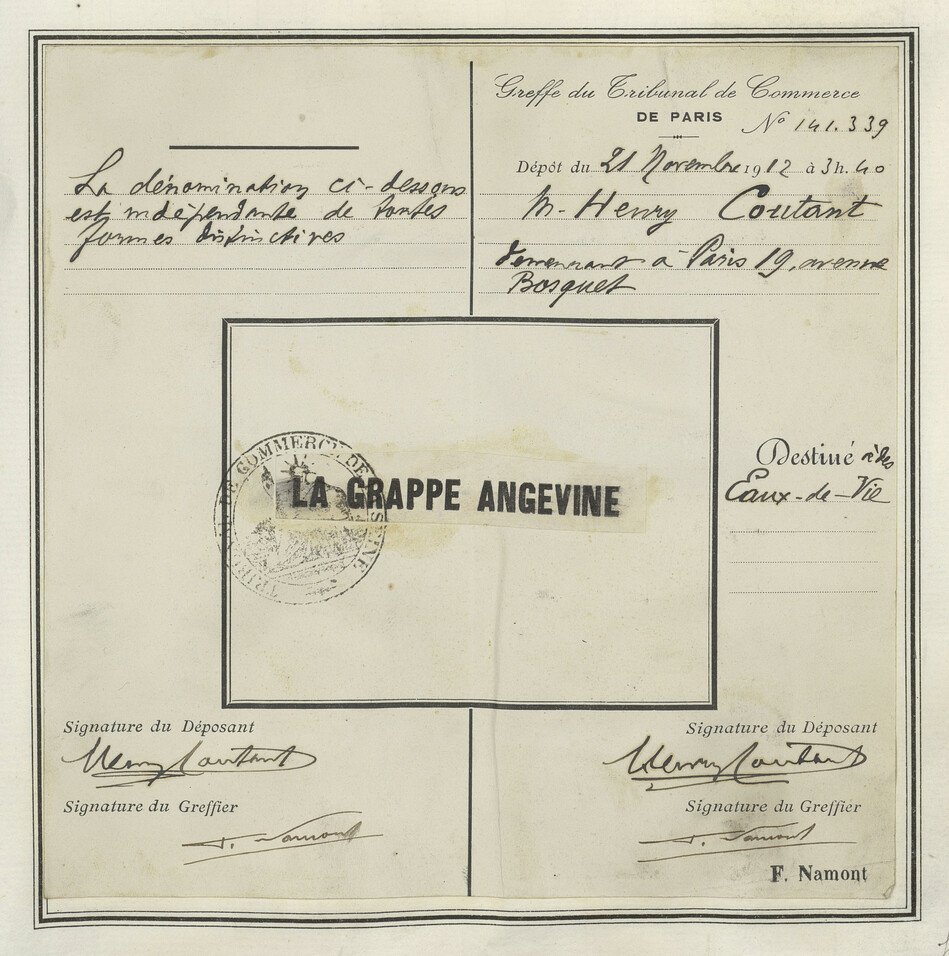 La dénomination ci-dessous
est indépendante de toutes
formes distinctives
Greffe du Tribunal de Commerce
DE PARIS
No 141.339
Dépôt du 21 Novembre 1912 à 3h. 40
M. Henry Coutant
demeurant à Paris 19, avenue
Bosquet
TRIBUNAL DE COMMERCE DE SEINE
LA GRAPPE ANGEVINE
Destiné à des
Eaux-de-Vie
Signature du Déposant
Henry Coutant
Signature du Greffier
F. Namont
Signature du Déposant
Henry Coutant
Signature du Greffier
F. Namont
F. Namont